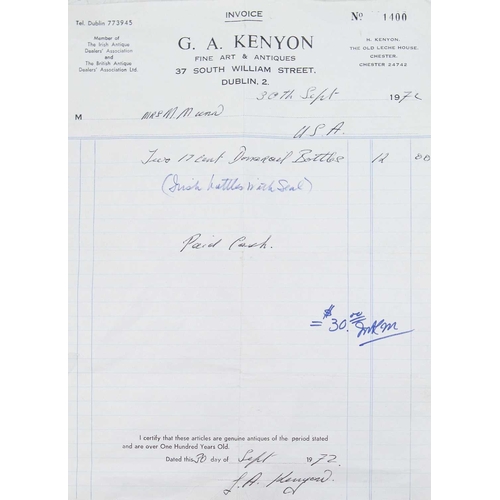 INVOICE
Tel. Dublin 773945
Nº 1400
Member of
The Irish Antique
Dealers' Association
and
The British Antique
Dealers' Association Ltd.
G. A. KENYON
FINE ART & ANTIQUES
37 SOUTH WILLIAM STREET,
DUBLIN, 2.
H. KENYON,
THE OLD LECHE HOUSE,
CHESTER.
CHESTER 24742
30th Sept 1972
M Mrs M
USA.
Two 17 Cent Bottles 12 00
(Irish bottles with Seal)
Paid Cash.
= $30.00
I certify that these articles are genuine antiques of the period stated
and are over One Hundred Years Old.
Dated this 30 day of Sept 1972
G. A. Kenyon.